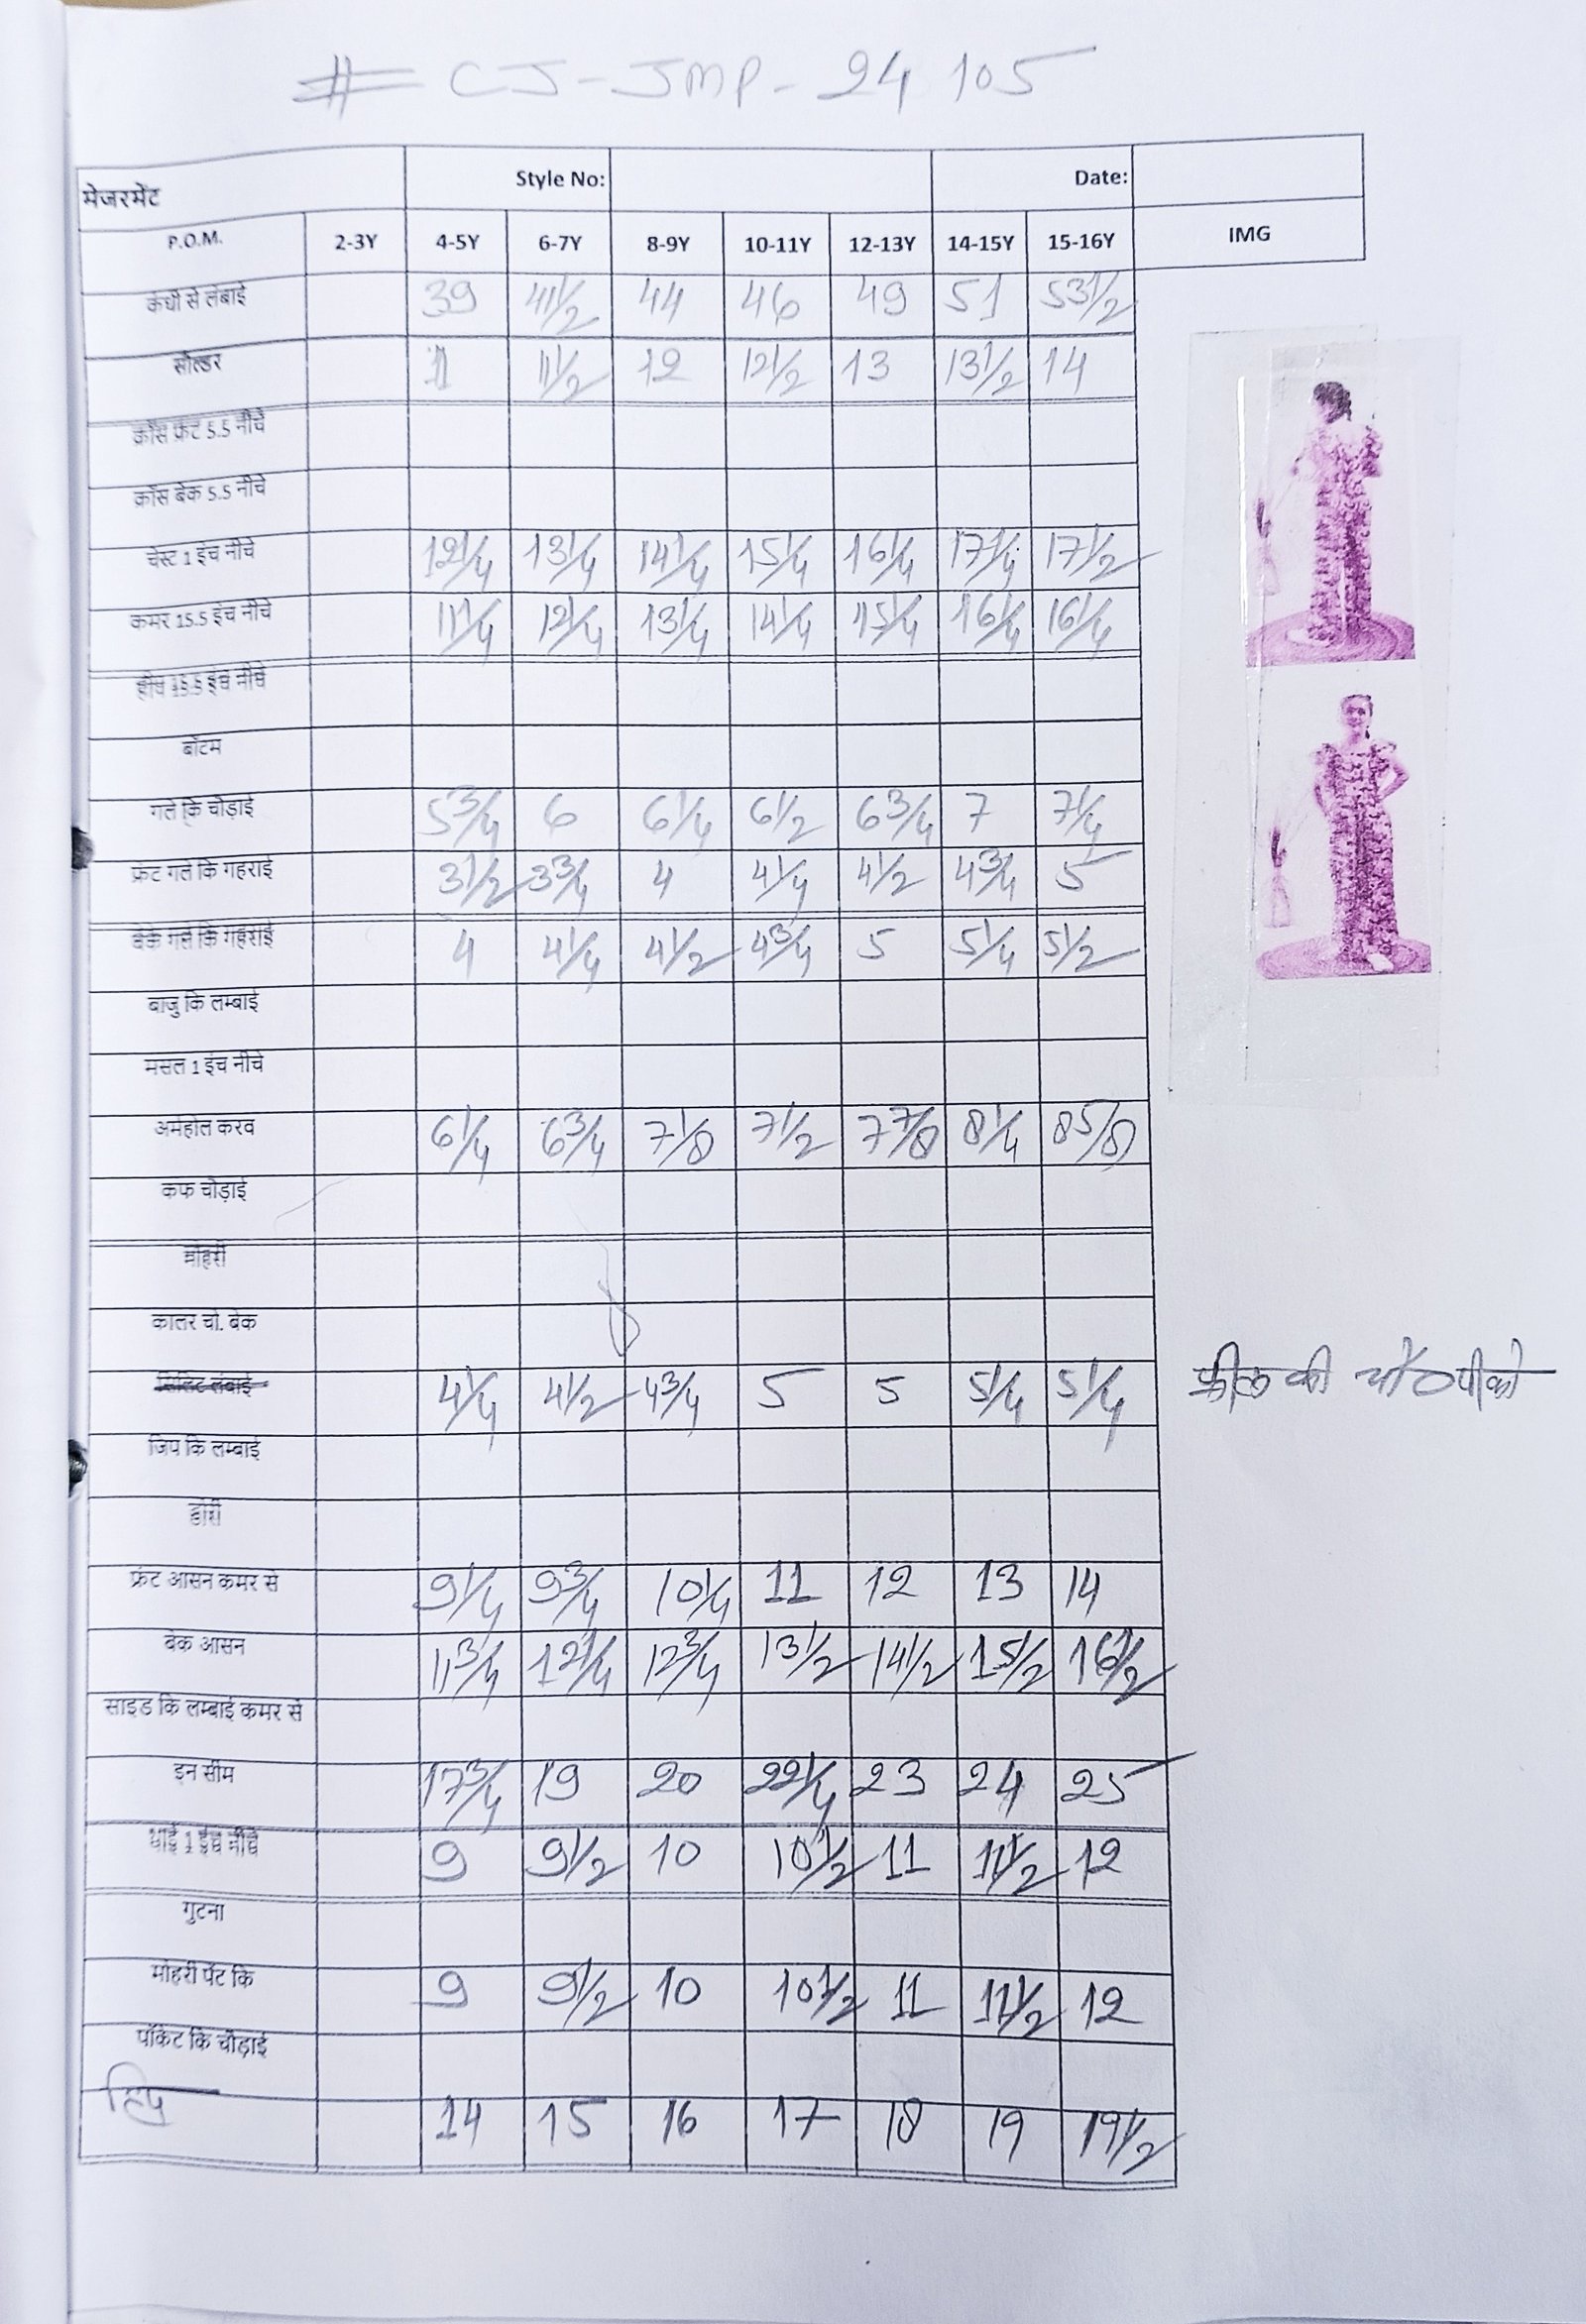 # CJ-JMP-24105
मेजरमेंट Style No: Date:
P.O.M. 2-3Y 4-5Y 6-7Y 8-9Y 10-11Y 12-13Y 14-15Y 15-16Y IMG
कंधी से लंबाई 39 41 1/2 44 46 49 51 53 1/2
सोल्डर 11 11 1/2 12 12 1/2 13 13 1/2 14
क्रॉस फ्रंट 5.5 नीचे
क्रॉस बेक 5.5 नीचे
चेस्ट 1 इंच नीचे 12 1/4 13 1/4 14 1/4 15 1/4 16 1/4 17 1/4 17 1/2
कमर 15.5 इंच नीचे 11 1/4 12 1/4 13 1/4 14 1/4 15 1/4 16 1/4 16 1/4
हीप 15.5 इंच नीचे
बॉटम
गले कि चोड़ाई 5 3/4 6 6 1/4 6 1/2 6 3/4 7 7 1/4
फ्रंट गले कि गहराई 3 1/2 3 3/4 4 4 1/4 4 1/2 4 3/4 5
बेक गले कि गहराई 4 4 1/4 4 1/2 4 3/4 5 5 1/4 5 1/2
बाजु कि लम्बाई
मसल 1 इंच नीचे
अर्महोल करव 6 1/4 6 3/4 7 1/8 7 1/2 7 7/8 8 1/4 8 5/8
कफ चोड़ाई
मोहरी
कालर चो. बेक
सिलिट लंबाई 4 1/4 4 1/2 4 3/4 5 5 5 1/4 5 1/4 फ्रील की चौ० पीको
जिप कि लम्बाई
डोरी
फ्रंट आसन कमर से 9 1/4 9 3/4 10 1/4 11 12 13 14
बेक आसन 11 3/4 12 1/4 12 3/4 13 1/2 14 1/2 15 1/2 16 1/2
साइड कि लम्बाई कमर से
इन सीम 17 3/4 19 20 22 1/4 23 24 25
थाई 1 इंच नीचे 9 9 1/2 10 10 1/2 11 11 1/2 12
गुटना
मोहरी पेंट कि 9 9 1/2 10 10 1/2 11 11 1/2 12
पॉकेट कि चौड़ाई
हिप 14 15 16 17 18 19 19 1/2